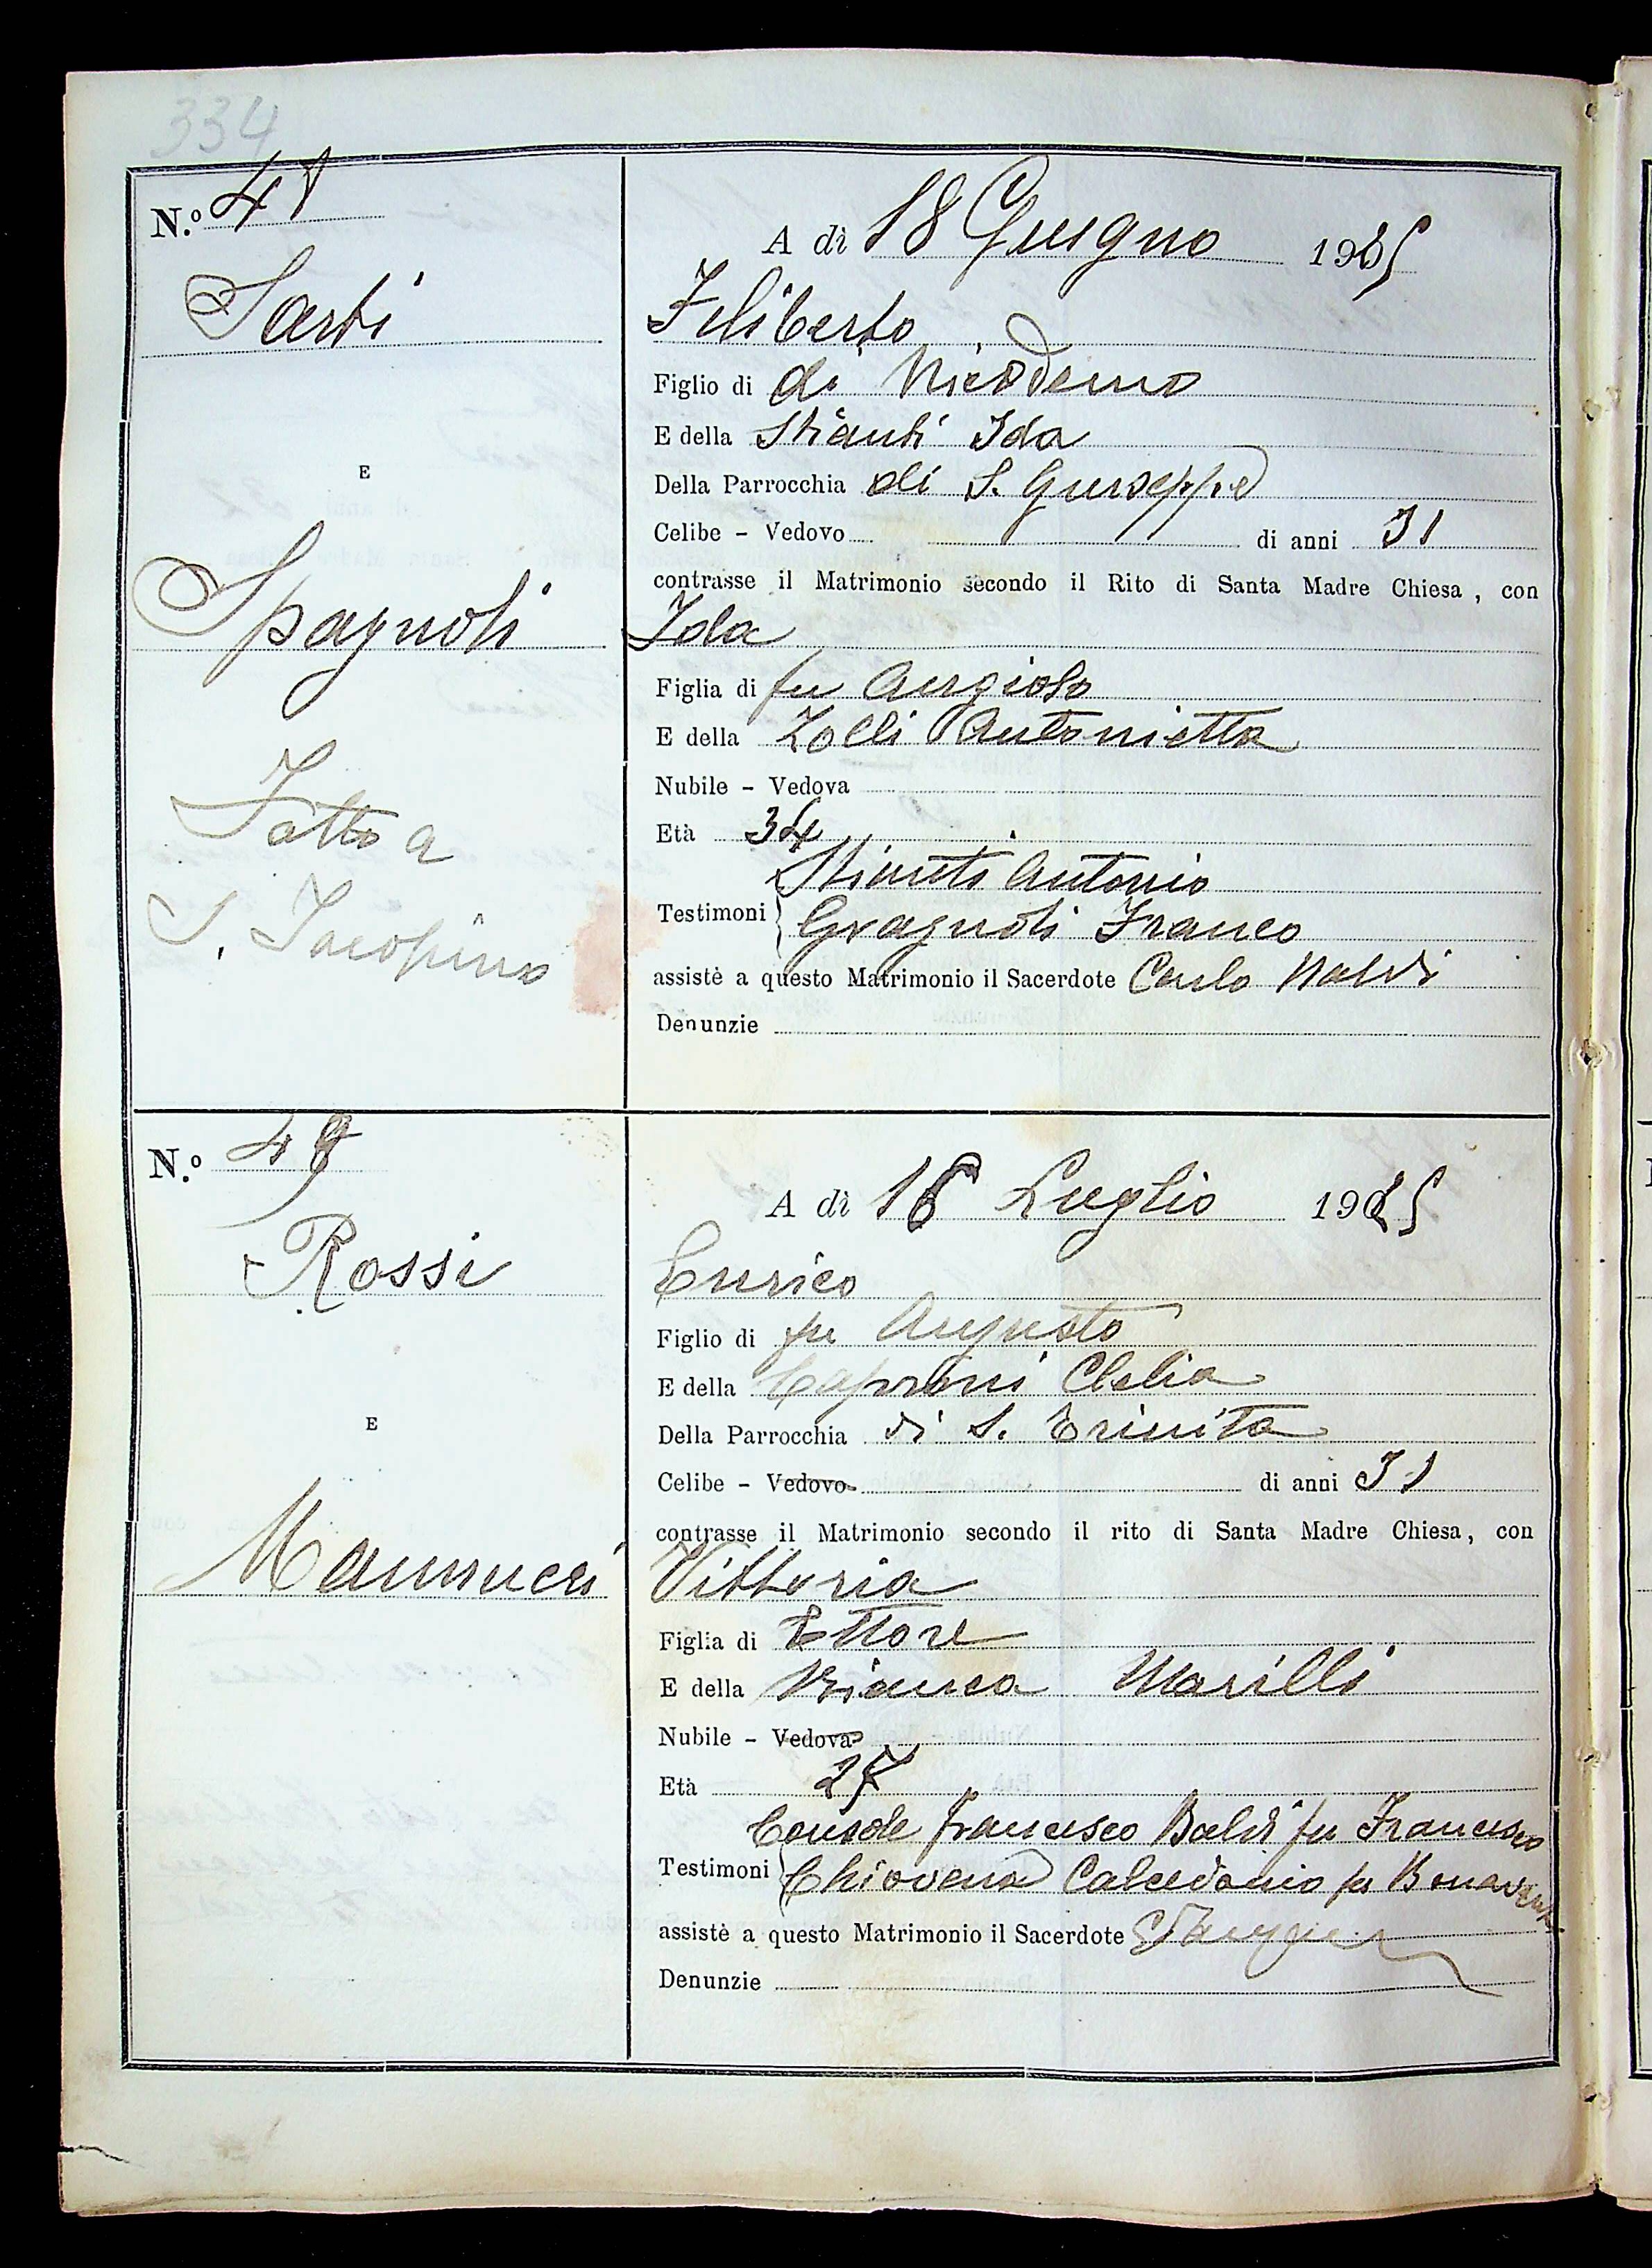 334
N.º 48
A dì 18 Giugno 1925
Sarti
Filiberto
Figlio di di Nicodemo
E della Stianti Ida
E
Della Parrocchia di S. Giuseppe
Celibe - Vedovo di anni 31
contrasse il Matrimonio secondo il Rito di Santa Madre Chiesa, con
Spagnoli
Ida
Figlia di fu Angiolo
E della Zolli Antonietta
Nubile - Vedova
Fatto a
Età 34
S. Jacopino
Antonio
Testimoni Franco
assistè a questo Matrimonio il Sacerdote Carlo Naldi
Denunzie
N.º 49
A dì 16 Luglio 1925
Rossi
Enrico
Figlio di fu Augusto
E della Caproni Clelia
E
Della Parrocchia di S. Trinita
Celibe - Vedovo di anni 31
contrasse il Matrimonio secondo il rito di Santa Madre Chiesa, con
Mannucci
Vittoria
Figlia di Ettore
E della Bianca Marilli
Nubile - Vedova
Età 27
Console Francesco Baldi fu Francesco
Testimoni Chiovena Calcedonio fu
assistè a questo Matrimonio il Sacerdote
Denunzie